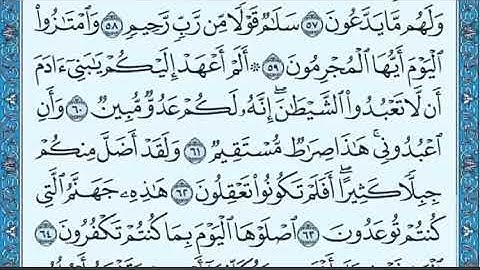 وَلَهُم مَّا يَدَّعُونَ ۝٥٧ سَلَٰمٌ قَوْلًا مِّن رَّبٍّ رَّحِيمٍ ۝٥٨ وَٱمْتَٰزُوا۟
ٱلْيَوْمَ أَيُّهَا ٱلْمُجْرِمُونَ ۝٥٩ ۞ أَلَمْ أَعْهَدْ إِلَيْكُمْ يَٰبَنِىٓ ءَادَمَ
أَن لَّا تَعْبُدُوا۟ ٱلشَّيْطَٰنَ ۖ إِنَّهُۥ لَكُمْ عَدُوٌّ مُّبِينٌ ۝٦٠ وَأَنِ
ٱعْبُدُونِى ۚ هَٰذَا صِرَٰطٌ مُّسْتَقِيمٌ ۝٦١ وَلَقَدْ أَضَلَّ مِنكُمْ
جِبِلًّا كَثِيرًا ۖ أَفَلَمْ تَكُونُوا۟ تَعْقِلُونَ ۝٦٢ هَٰذِهِۦ جَهَنَّمُ ٱلَّتِى
كُنتُمْ تُوعَدُونَ ۝٦٣ ٱصْلَوْهَا ٱلْيَوْمَ بِمَا كُنتُمْ تَكْفُرُونَ ۝٦٤